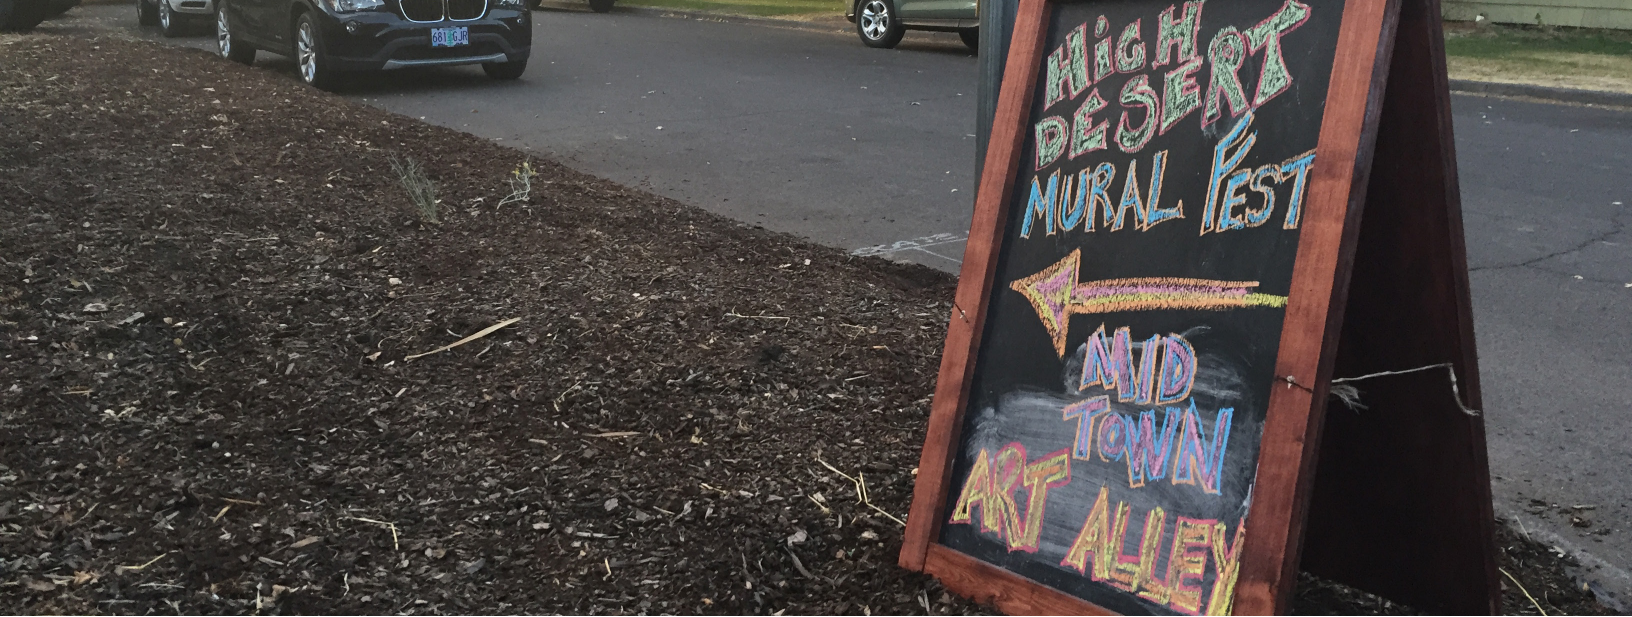 681 GJR
HiGH
DESERT
MURAL FEST
MID
TOWN
ART ALLEY